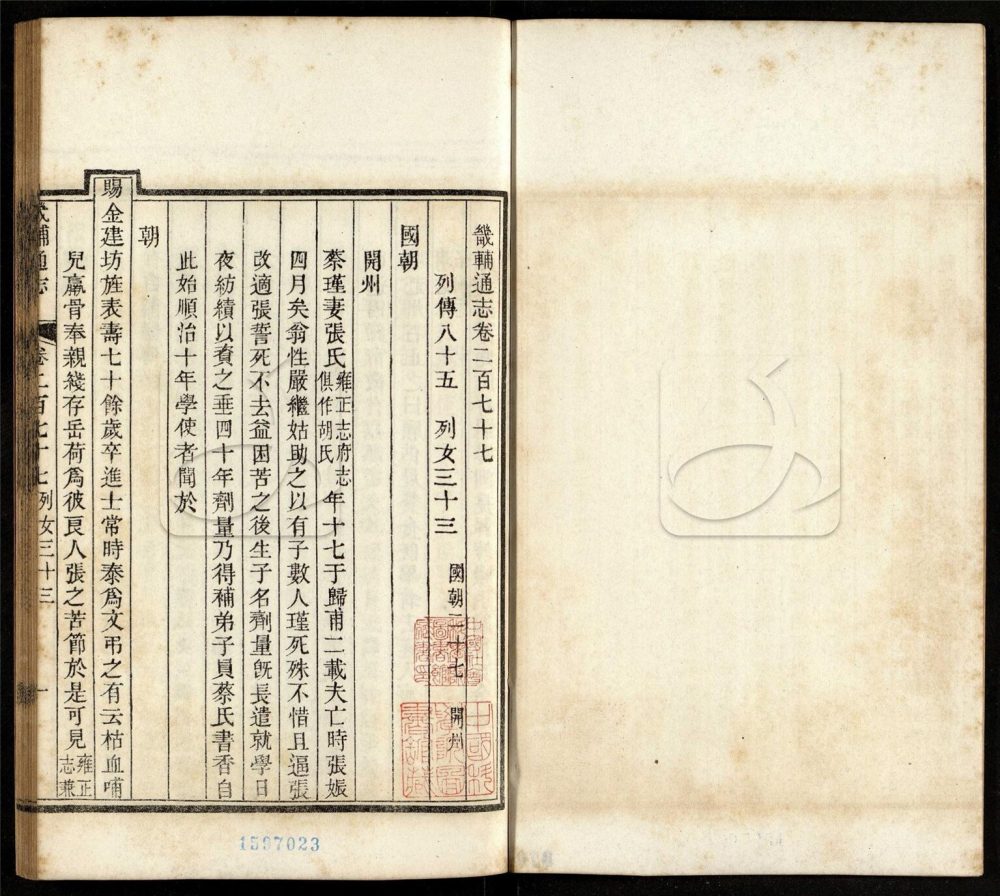 畿輔通志卷二百七十七
列傳八十五 列女三十三 國朝二十七 開州
國朝
開州
蔡瑾妻張氏雍正志府志俱作胡氏年十七于歸甫二載夫亡時張娠
四月矣翁性嚴繼姑助之以有子數人瑾死殊不惜且逼張
改適張誓死不去益困苦之後生子名劑量旣長遣就學日
夜紡績以資之垂四十年劑量乃得補弟子員蔡氏書香自
此始順治十年學使者聞於
朝
賜金建坊旌表壽七十餘歲卒進士常時泰爲文弔之有云枯血哺
兒羸骨奉親綫存岳荷爲彼良人張之苦節於是可見雍正志兼
輔通志 卷二百七十七 列女三十三 一
1597023